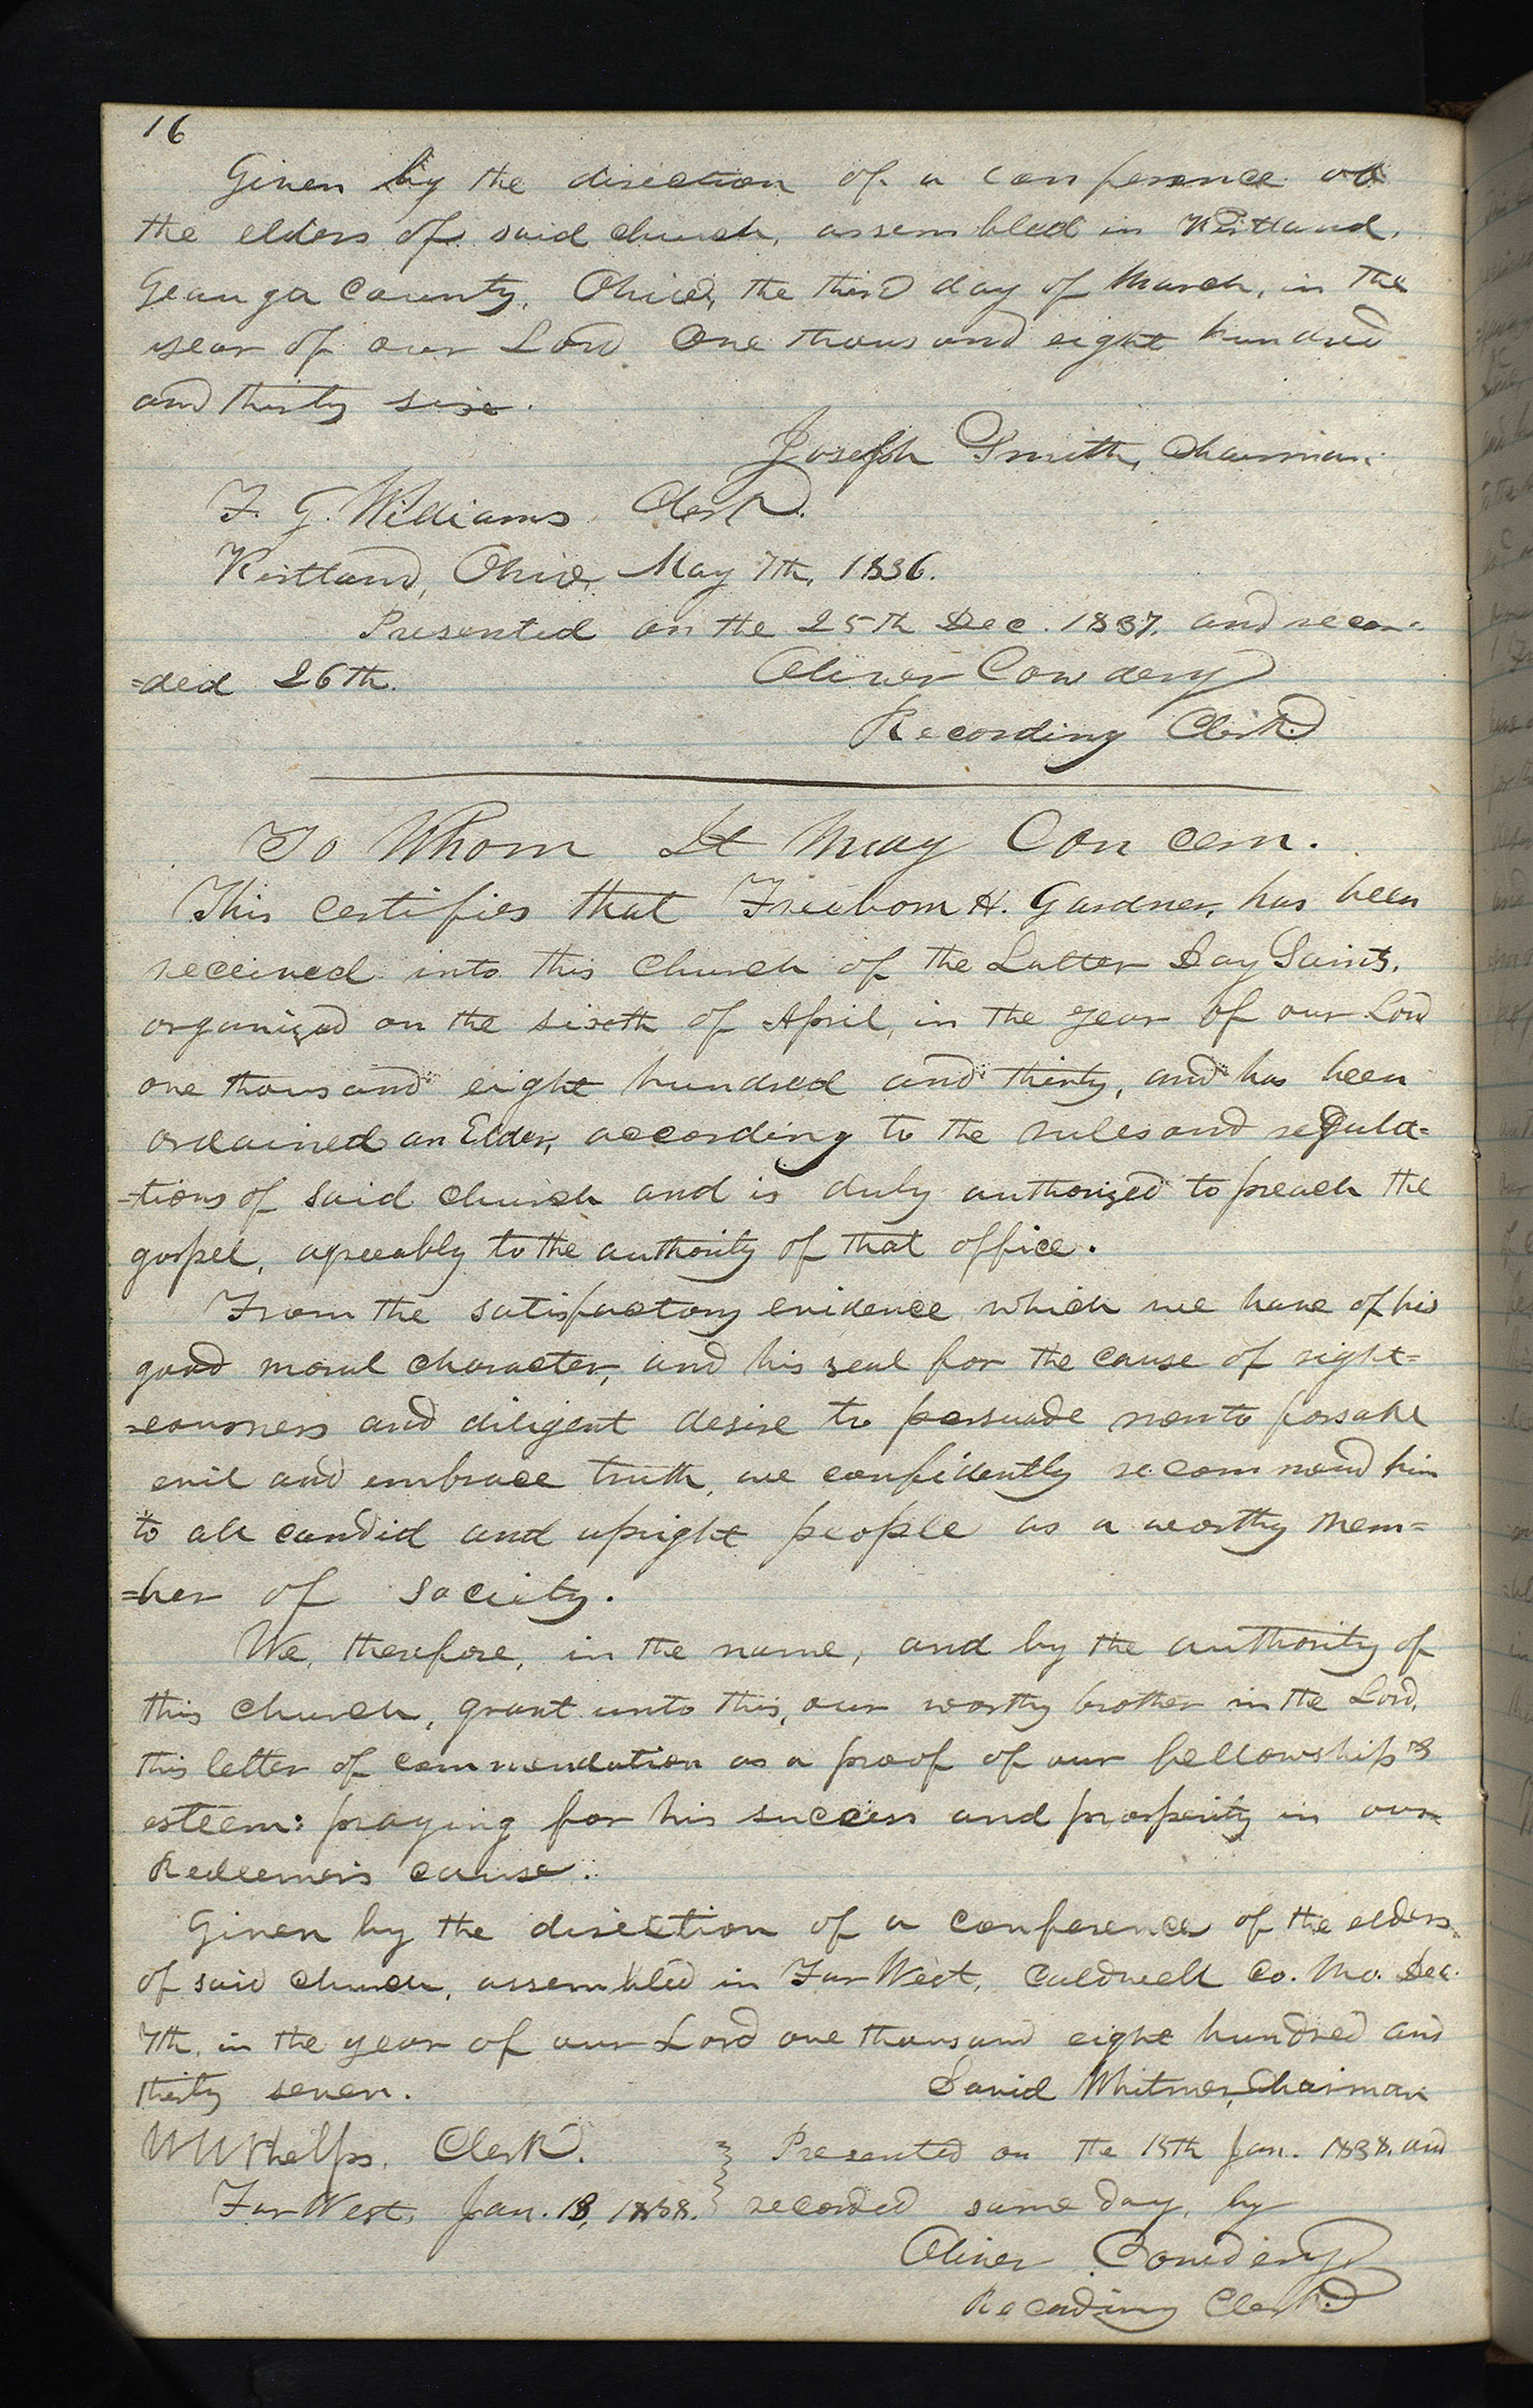 16
Given by the direction of a conference of
the elders of said church, assembled in Kirtland,
Geauga County, Ohio, the third day of March, in the
year of our Lord One thousand eight hundred
and thirty six.
Joseph Smith, Chairman.
F. G. Williams Clerk.
Kirtland, Ohio, May 7th, 1836.
Presented on the 25th Dec. 1837. and recor-
=ded 26th.
Oliver Cowdery
Recording Clerk.
To Whom It May Concern.
This certifies that Freeborn H. Gardner, has been
received into this church of the Latter Day Saints.
organized on the sixth of April, in the year of our Lord
one thousand eight hundred and thirty, and has been
ordained an Elder, according to the rules and regula=
=tions of said church and is duly authorized to preach the
gospel, agreeably to the authority of that office.
From the satisfactory evidence which we have of his
good moral character, and his zeal for the cause of right=
=eousness and diligent desire to persuade men to forsake
evil and embrace truth, we confidently recommend him
to all candid and upright people as a worthy mem=
=ber of society.
We, therefore, in the name, and by the authority of
this church, grant unto this, our worthy brother in the Lord,
this letter of commendation as a proof of our fellowship &
esteem: praying for his success and prosperity in our
Redeemer's cause.
Given by the direction of a conference of the elders
of said church, assembled in Far West, Caldwell Co. Mo. Dec.
7th, in the year of our Lord one thousand eight hundred and
thirty seven.
David Whitmer, Chairman
W W Phelps, Clerk.
Presented on the 15th Jan. 1838. and
Far West, Jan. 13, 1838.
recorded same day, by
Oliver Cowdery
Recording Clerk.